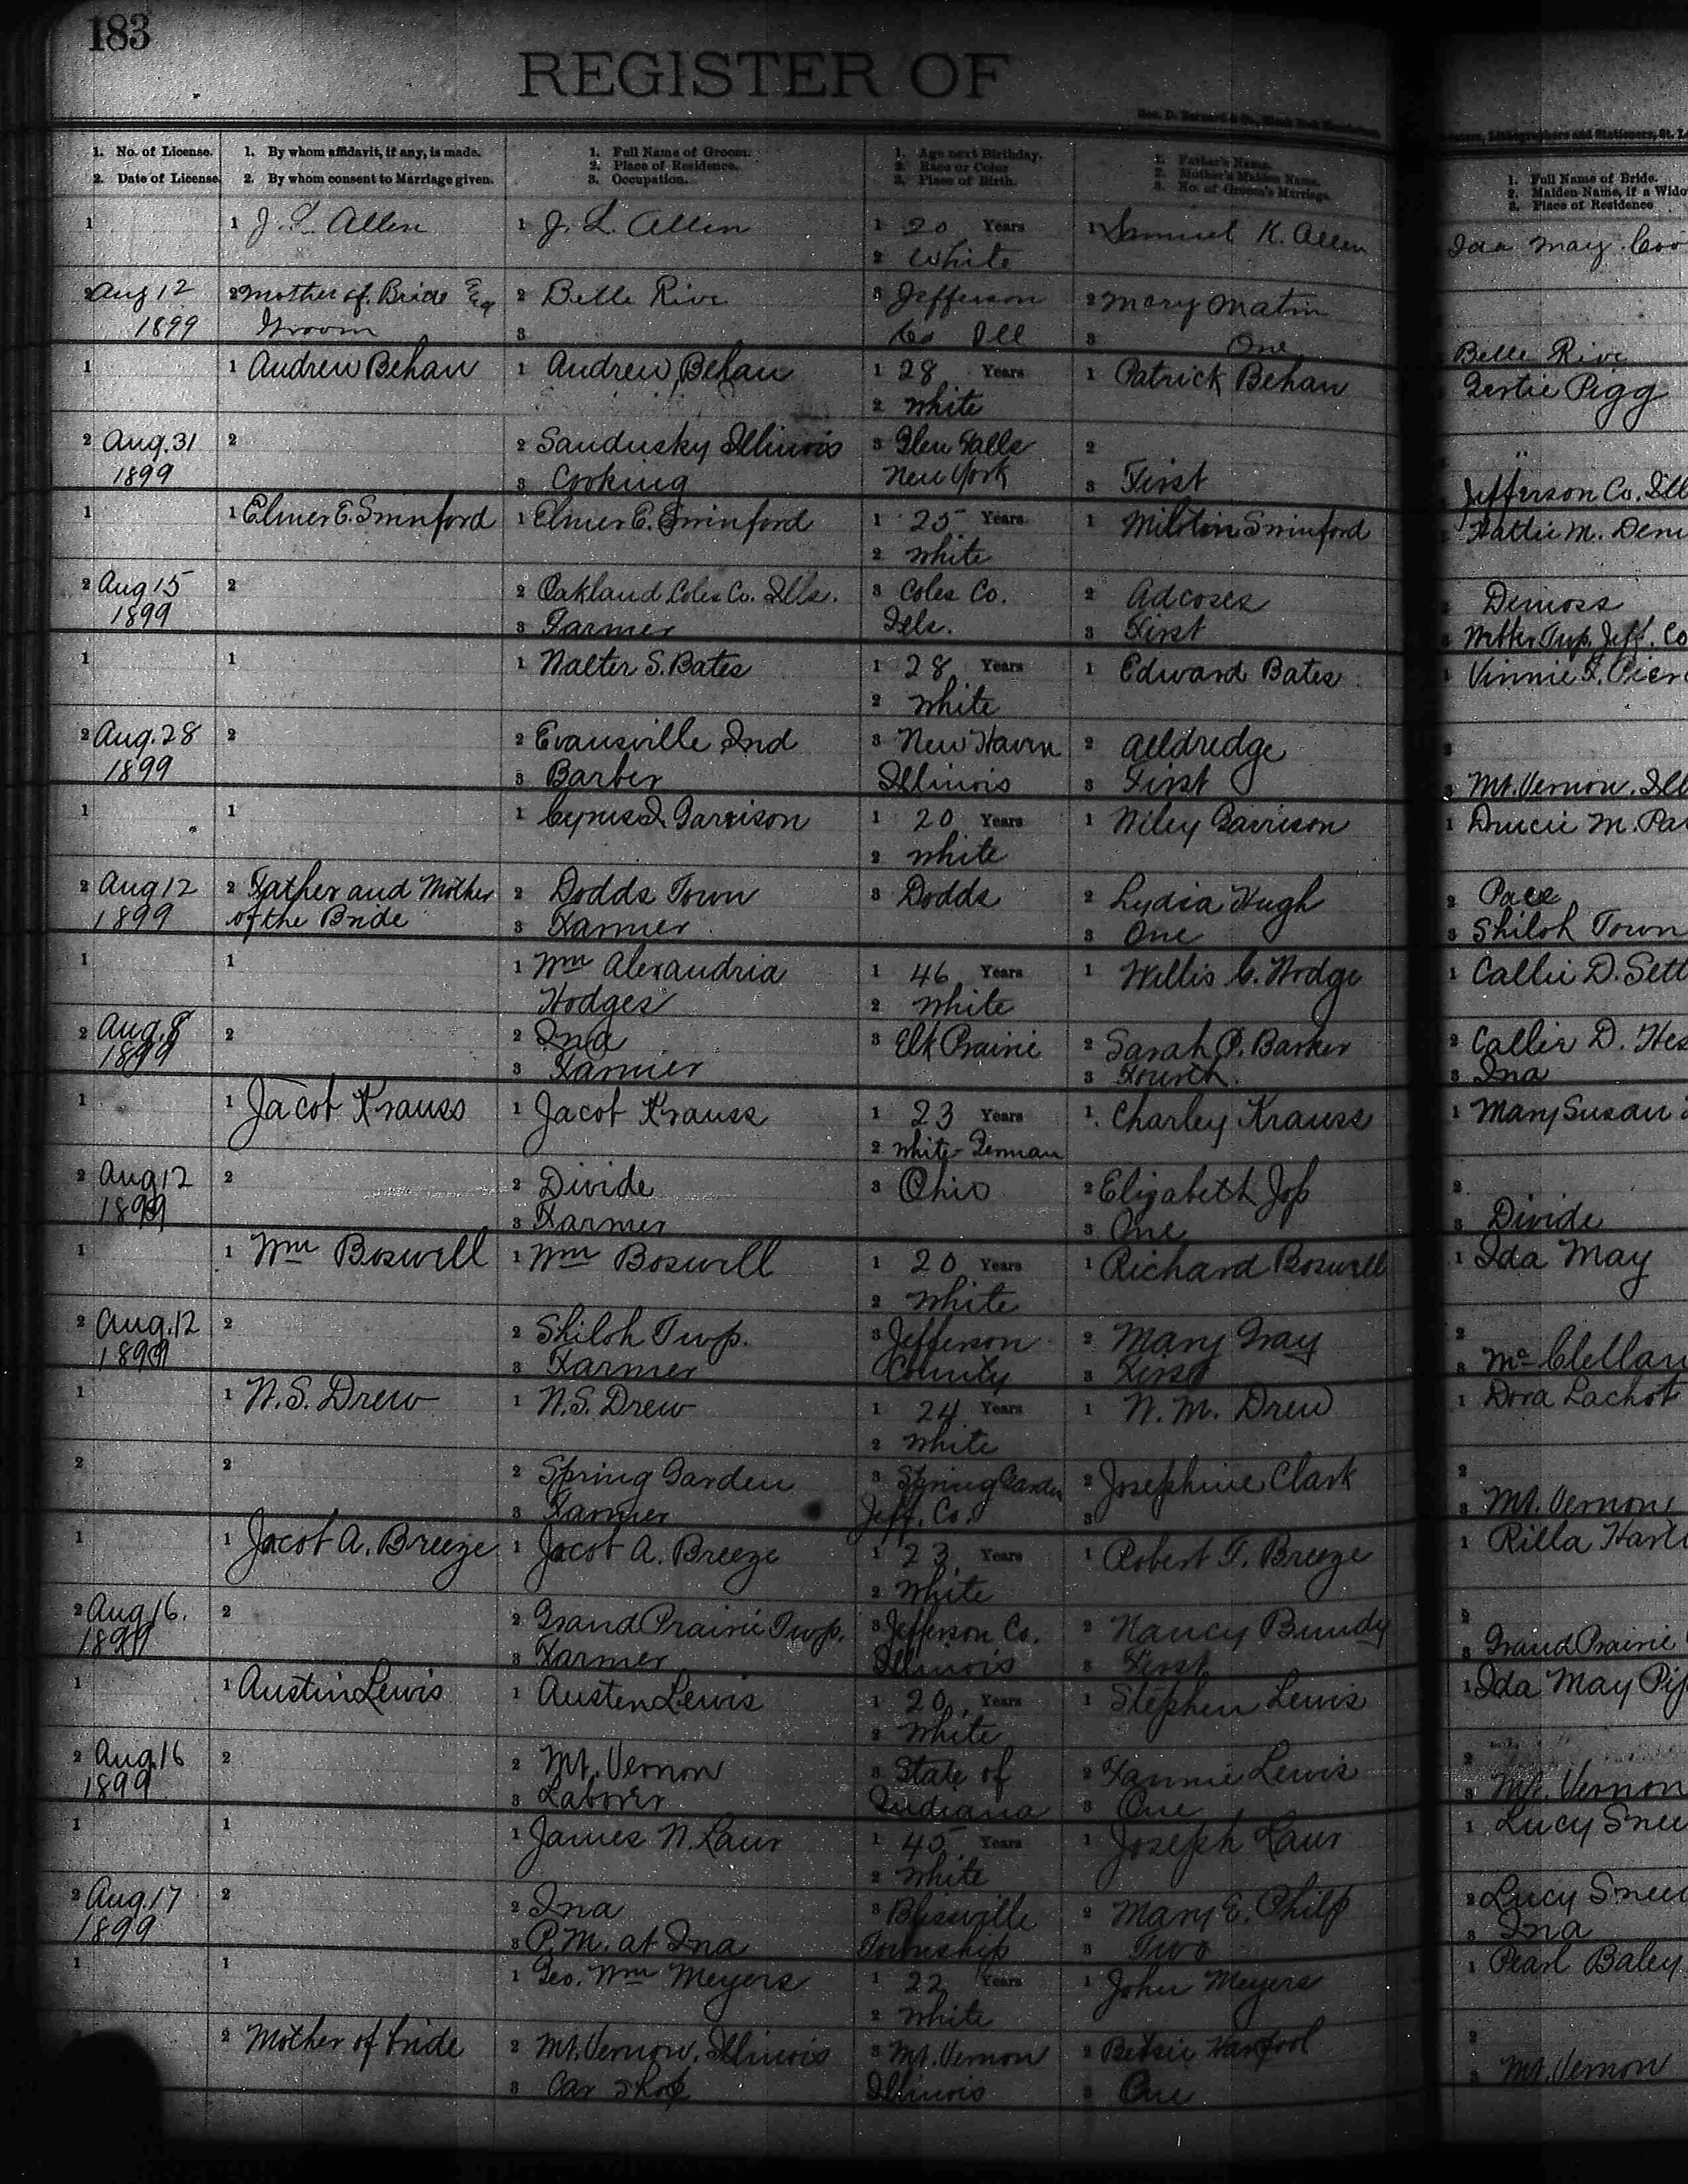 183
REGISTER OF
Geo. D. Barnard & Co., Blank Book
Lithographers and Stationers, St. L
1. No. of License.
2. Date of License.
1. By whom affidavit, if any, is made.
2. By whom consent to Marriage given.
1. Full Name of Groom.
2. Place of Residence.
3. Occupation.
1. Age next Birthday.
2. Race or Color
3. Place of Birth.
1. Father's Name.
2. Mother's Maiden Name.
3. No. of Groom's Marriage.
1. Full Name of Bride.
2. Maiden Name, if a Wido
3. Place of Residence
1 1 J. L. Allen 1 J. L. Allen 1 20 Years 1 Samuel K. Allen Ida May Coo
2 White
2 Aug 12 2 Mother of Bride & 2 Belle Rive 3 Jefferson 2 Mary Matin
1899 Groom 3 Co Ill 3 One Belle Rive
1 1 Andrew Behan 1 Andrew Behan 1 28 Years 1 Patrick Behan Gertie Pigg
2 White
2 Aug. 31 2 2 Sandusky Illinois 3 Glen Falls 2
1899 3 Cooking New York 3 First Jefferson Co. Ill
1 1 Elmer E. Swinford 1 Elmer E. Swinford 1 25 Years 1 Swinford Hattie M. Dem
2 White
2 Aug 15 2 2 Oakland Coles Co. Ills. 3 Coles Co. 2 Adcoses Demoss
1899 3 Farmer Ills. 3 First Twp. Jeff. Co
1 1 1 Walter S. Bates 1 28 Years 1 Edward Bates 1 Vinnie F. Pier
2 White
2 Aug. 28 2 2 Evansville Ind 3 New Haven 2 Aeldredge 2
1899 3 Barber Illinois 3 First 3 Mt. Vernon, Ill
1 1 1 Cyrus I. Garrison 1 20 Years 1 Wiley Garrison 1 Drucie M. Pa
2 White
2 Aug 12 2 Father and Mother 2 Dodds Town 3 Dodds 2 Lydia Hugh 2 Pace
1899 of the Bride 3 Farmer 3 One 3 Shiloh Town
1 1 1 Wm Alexandria 1 46 Years 1 Willis C. Hodge 1 Callie D. Sett
Hodges 2 White
2 Aug. 8 2 2 Ina 3 Elk Prairie 2 Sarah P. Barker 2 Callie D. Hes
1899 3 Farmer 3 Fourth 3 Ina
1 1 Jacob Krauss 1 Jacob Krauss 1 23 Years 1 Charley Krauss 1 Mary Susan
2 White-German
2 Aug 12 2 2 Divide 3 Ohio 2 Elizabeth Jop 2
1899 3 Farmer 3 One 3 Divide
1 1 Wm Boswell 1 Wm Boswell 1 20 Years 1 Richard Boswell 1 Ida May
2 White
2 Aug. 12 2 2 Shiloh Twp. 3 Jefferson 2 Mary Gray 2
1899 3 Farmer County 3 First 3 Mc Clellan
1 1 W. S. Drew 1 W. S. Drew 1 24 Years 1 W. M. Drew 1 Dora Lachot
2 White
2 2 2 Spring Garden 3 Spring Garden 2 Josephine Clark 2
3 Farmer Jeff. Co. 3 3 Mt. Vernon
1 1 Jacob A. Breeze 1 Jacob A. Breeze 1 23 Years 1 Robert T. Breeze 1 Rilla Harl
2 White
2 Aug 16. 2 2 Grand Prairie Twp. 3 Jefferson Co. 2 Nancy Bundy 2
1899 3 Farmer Illinois 3 First 3 Grand Prairie
1 1 Austin Lewis 1 Austen Lewis 1 20 Years 1 Stephen Lewis 1 Ida May Pi
2 White
2 Aug. 16 2 2 Mt. Vernon 3 State of 2 Fannie Lewis 2
1899 3 Laborer Indiana 3 One 3 Mt. Vernon
1 1 1 James W. Laur 1 45 Years 1 Joseph Laur 1 Lucy Snee
2 White
2 Aug. 17 2 2 Ina 3 Blissville 2 Mary E. Philp 2 Lucy Snee
1899 3 P.M. at Ina Township 3 Two 3 Ina
1 1 1 Geo. Wm Meyers 1 22 Years 1 John Meyers 1 Pearl Baley
2 White
2 Mother of bride 2 Mt. Vernon, Illinois 3 Mt. Vernon 2 Betsie 2
3 Car Shop Illinois 3 One 3 Mt. Vernon